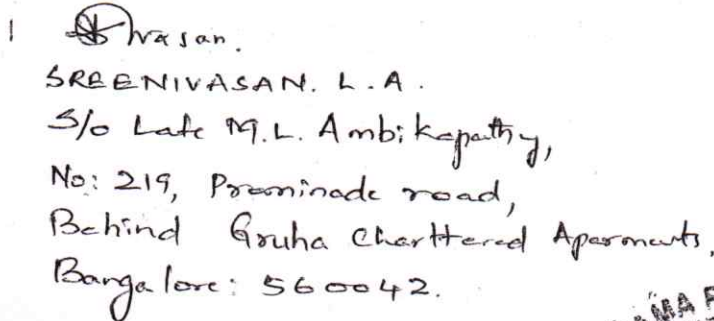 1
SREENIVASAN. L.A.
S/o Late M.L. Ambikapathy,
No: 219, Prominade road,
Behind Gruha Charttered Aparments,
Bangalore: 560042.